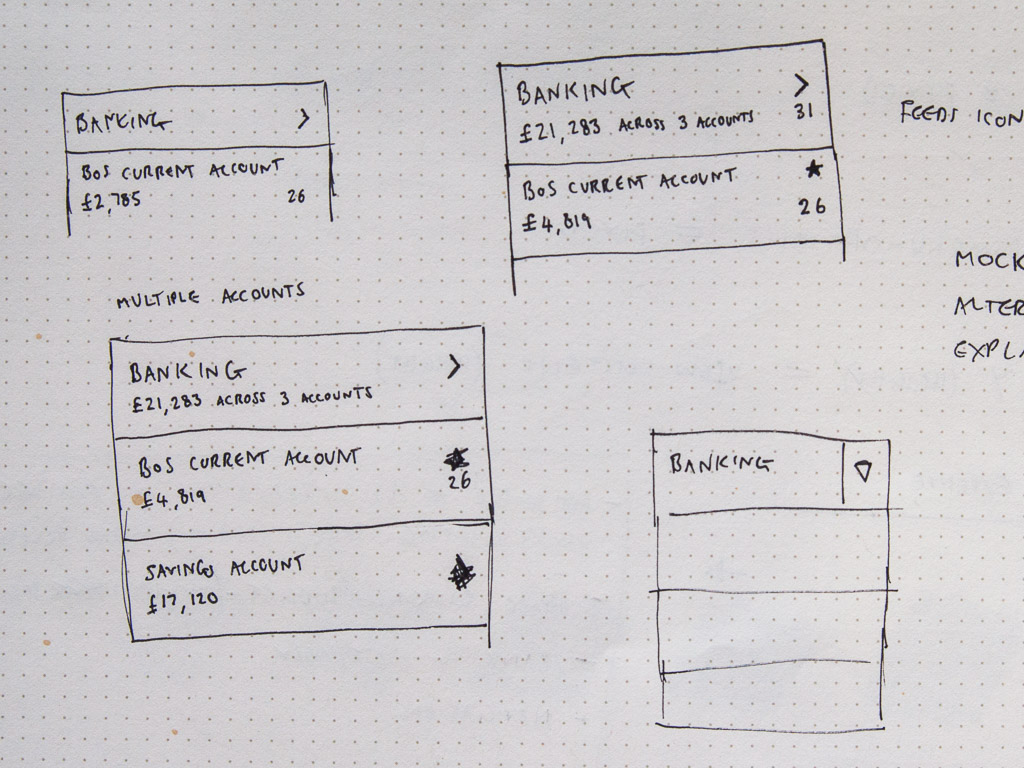 BANKING
BOS CURRENT ACCOUNT
£2,785 26
BANKING
£21,283 ACROSS 3 ACCOUNTS 31
BOS CURRENT ACCOUNT
£4,819 26
FEEDS ICON
MOCK
ALTER
EXPLA
MULTIPLE ACCOUNTS
BANKING
£21,283 ACROSS 3 ACCOUNTS
BOS CURRENT ACCOUNT
£4,819 26
SAVINGS ACCOUNT
£17,120
BANKING